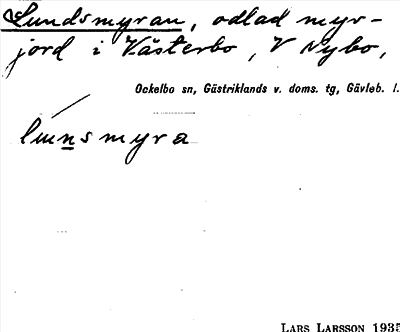 Lundsmyran, odlad myr-
jord i Västerbo, V Nybo,
Ockelbo sn, Gästriklands v. doms. tg, Gävleb. l.
lunsmyra
LARS LARSSON 1935